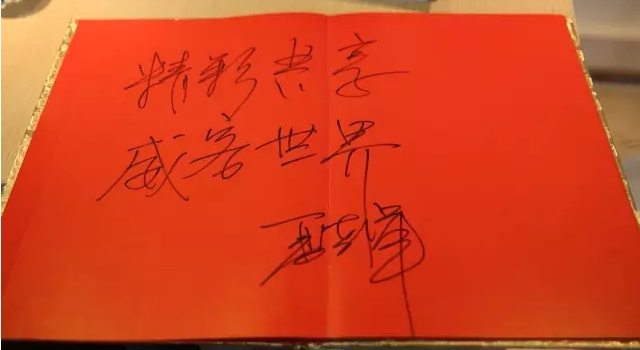 精彩共享
威客世界